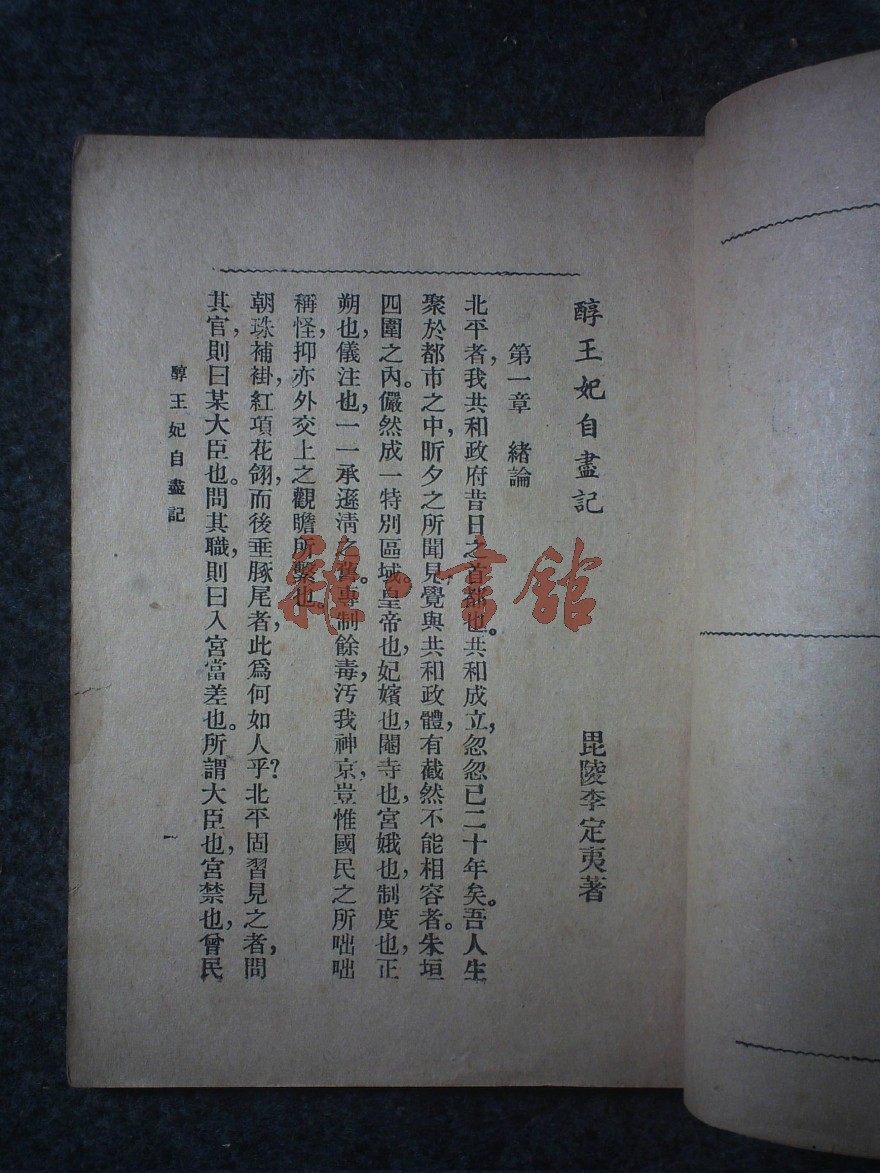 醇王妃自盡記
毘陵李定夷著
第一章 緒論
北平者，我共和政府昔日之首都也。共和成立，忽忽已二十年矣。吾人生
聚於都市之中，昕夕之所聞見，覺與共和政體，有截然不能相容者。朱垣
四圍之內。儼然成一特別區域。皇帝也，妃嬪也，閹寺也，宮娥也，制度也，正
朔也，儀注也，一一承遜清之舊。專制餘毒，汚我神京，豈惟國民之所咄咄
稱怪，抑亦外交上之觀瞻所繫也。
朝珠補褂，紅項花翎，而後垂豚尾者，此爲何如人乎？北平固習見之者，問
其官，則曰某大臣也。問其職，則曰入宮當差也。所謂大臣也，宮禁也，曾民
醇王妃自盡記
一
雜·書館